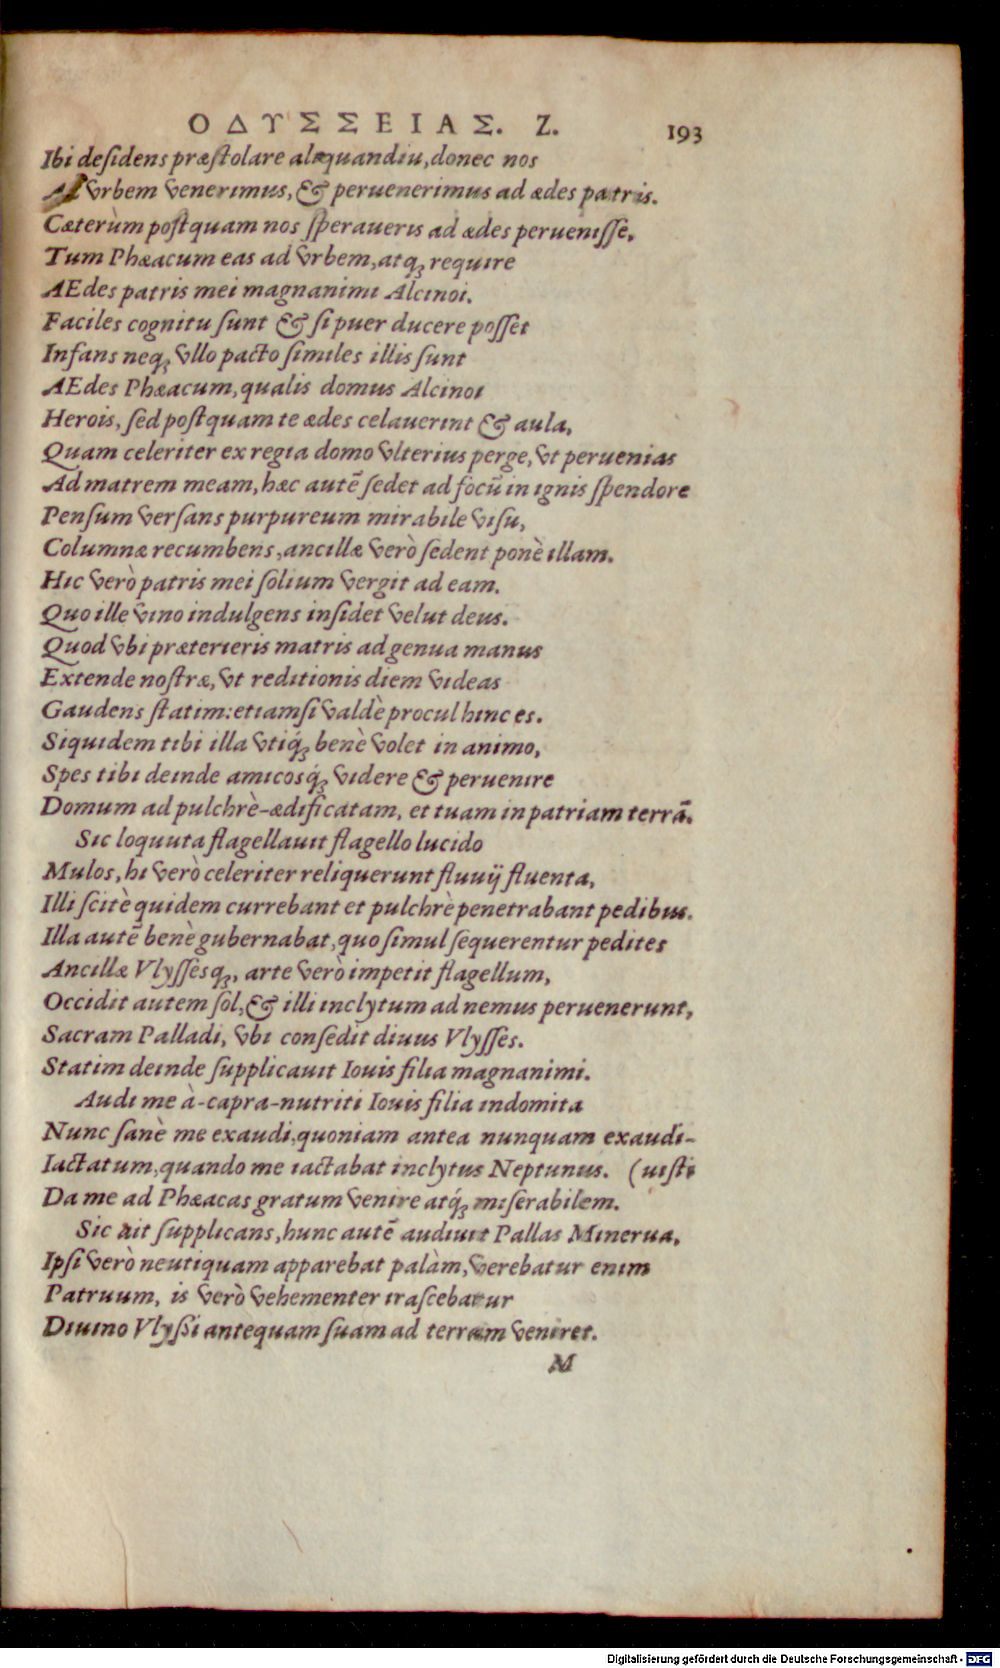 ΟΔΥΣΣΕΙΑΣ. Ζ. 193
Ibi desidens præstolare aliquandiu, donec nos
Ad vrbem venerimus, & peruenerimus ad ædes patris.
Cæterùm postquam nos speraueris ad ædes peruenisse,
Tum Phæacum eas ad vrbem, atq; require
AEdes patris mei magnanimi Alcinoi.
Faciles cognitu sunt & si puer ducere posset
Infans neq; vllo pacto similes illis sunt
AEdes Phæacum, qualis domus Alcinoi
Herois, sed postquam te ædes celauerint & aula,
Quam celeriter ex regia domo vlterius perge, vt peruenias
Ad matrem meam, hæc autē sedet ad focū in ignis spendore
Pensum versans purpureum mirabile visu,
Columnæ recumbens, ancillæ verò sedent ponè illam.
Hic verò patris mei solium vergit ad eam.
Quo ille vino indulgens insidet velut deus.
Quod vbi præterieris matris ad genua manus
Extende nostræ, vt reditionis diem videas
Gaudens statim: etiamsi valdè procul hinc es.
Siquidem tibi illa vtiq́; benè volet in animo,
Spes tibi deinde amicosq́; videre & peruenire
Domum ad pulchrè-ædificatam, et tuam in patriam terrā.
Sic loquuta flagellauit flagello lucido
Mulos, hi verò celeriter reliquerunt fluuij fluenta,
Illi scitè quidem currebant et pulchrè penetrabant pedibus.
Illa autē benè gubernabat, quo simul sequerentur pedites
Ancillæ Vlyssesq;, arte verò impetit flagellum,
Occidit autem sol, & illi inclytum ad nemus peruenerunt,
Sacram Palladi, vbi consedit diuus Vlysses.
Statim deinde supplicauit Iouis filia magnanimi.
Audi me à-capra-nutriti Iouis filia indomita
Nunc sanè me exaudi, quoniam antea nunquam exaudi-
Iactatum, quando me iactabat inclytus Neptunus. (uisti
Da me ad Phæacas gratum venire atq́; miserabilem.
Sic ait supplicans, hunc autē audiuit Pallas Minerua,
Ipsi verò neutiquam apparebat palàm, verebatur enim
Patruum, is verò vehementer irascebatur
Diuino Vlyssi antequam suam ad terram veniret.
M
Digitalisierung gefördert durch die Deutsche Forschungsgemeinschaft - DFG